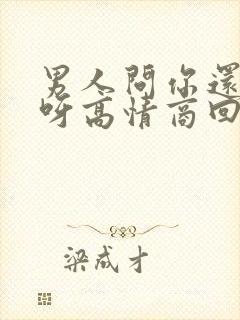 男人問你還
呀高情商回
梁成才